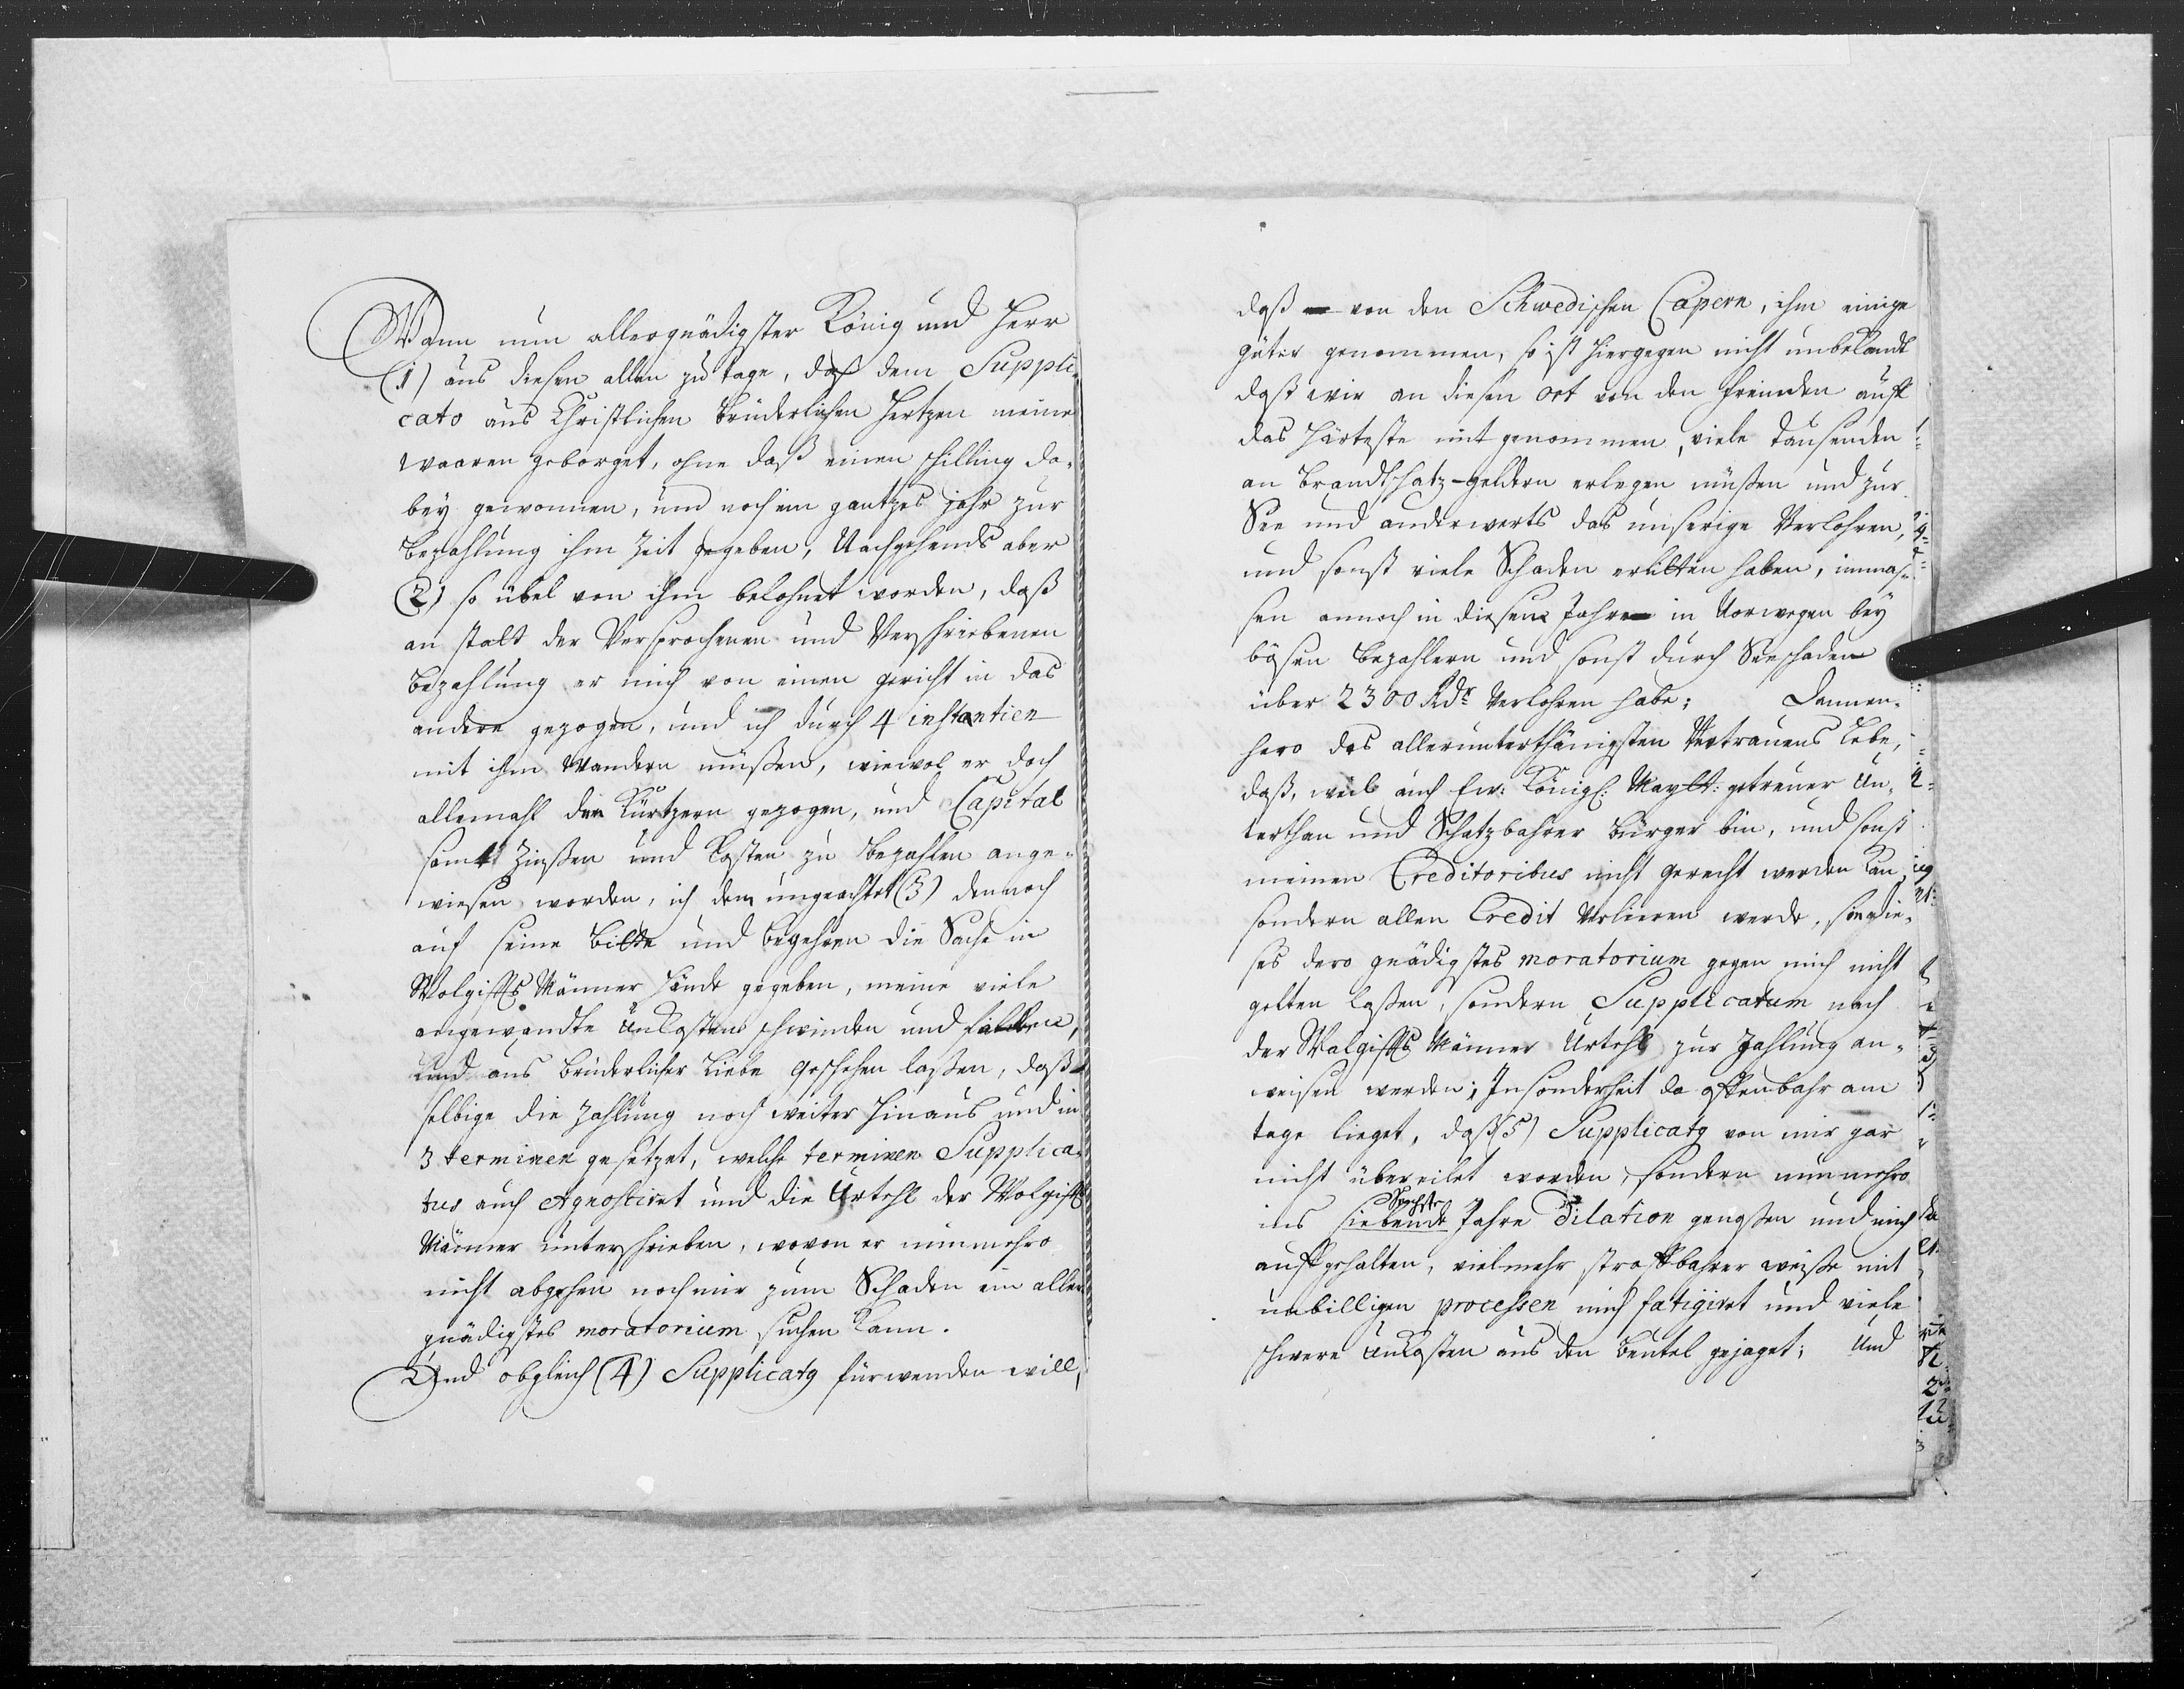 Wann nun allergnädigster König und Herr
(1) aus diesen allen zu tage, daß dem Suppli¬
cato aus Christlichen brüderlichen Hertzen meine
waaren geborget, ohne daß einen schilling da¬
bey gewonnen, und noch ein gantzes jahr zur
bezahlung ihm Zeit gegeben, Nachgehends aber
(2) so übel von ihm belohnet worden, daß
an statt der Versprochenen und Verschriebenen
bezahlung er mich von einen gericht in das
andere gezogen, und ich durch 4 instantien
mit ihm wandern müßen, wiewol er doch
allemahl den Kürtzern gezogen, und Capital
samt Zinßen und Kosten zu bezahlen ange¬
wiesen worden, ich dem ungeachtet (3) dennoch
auf seine bitte und begehren die Sache in
Wolgiffts Männer Hände gegeben, meine viele
angewandte Unkosten schwinden und fallen,
Und aus brüderlicher Liebe geschehen laßen, daß
selbige die Zahlung noch weiter hinaus und in
3 terminen gesetzet, welche terminen Supplica¬
tus auch Agnosciret und die Urtehl der Wolgiffts
Männer unterschrieben, wovon er nunmehro
nicht abgehen noch mir zum Schaden ein aller
gnädigstes moratorium suchen kann.
Und obgleich (4) Supplicatg fürwenden will,
daß von den Schwedischen Capern, ihm einige
güter genommen, so ist hiergegen nicht unbekandt
daß wir an diesen ort von den freinden auff
das Härteste mit genommen, viele Tausenden
an brandtschatz-geldern erlegen müßen und zur
See und anderwerts das unserige Verlohren,
und sonst viele Schaden erlitten haben, immas¬
sen annoch in diesem Jahre in Norwegen bey
bösen bezahlern und sonst durch Seeschaden
über 2300 Rdr Verlohren habe; Dannen¬
hero des allerunterthänigsten Vertrauens Lebe,
daß, weil auch Ew: Königl: Maytt: getreuer Un¬
terthan und Schatzbahrer bürger bin, und sonst
meinen Creditoribus nicht gerecht werden kan,
sondern allen Credit Verlieren werde, sie die¬
ses dero gnädigstes moratorium gegen mich nicht
gelten laßen, sondern Supplicatum nach
der Wolgiffts Männer Urtehl zur Zahlung an¬
weisen werden; Insonderheit da offenbahr am
tage lieget, daß (5) Supplicatg von mir gar
nicht übereilet worden, sondern nunmehro
ins siebende Sechste Jahre Dilation genoßen und mich
auffgehalten, vielmehr straffbahrer weiße mit
unbilligen processen mich fatigiret und viele
schwere Unkosten aus den beutel gejaget; Und